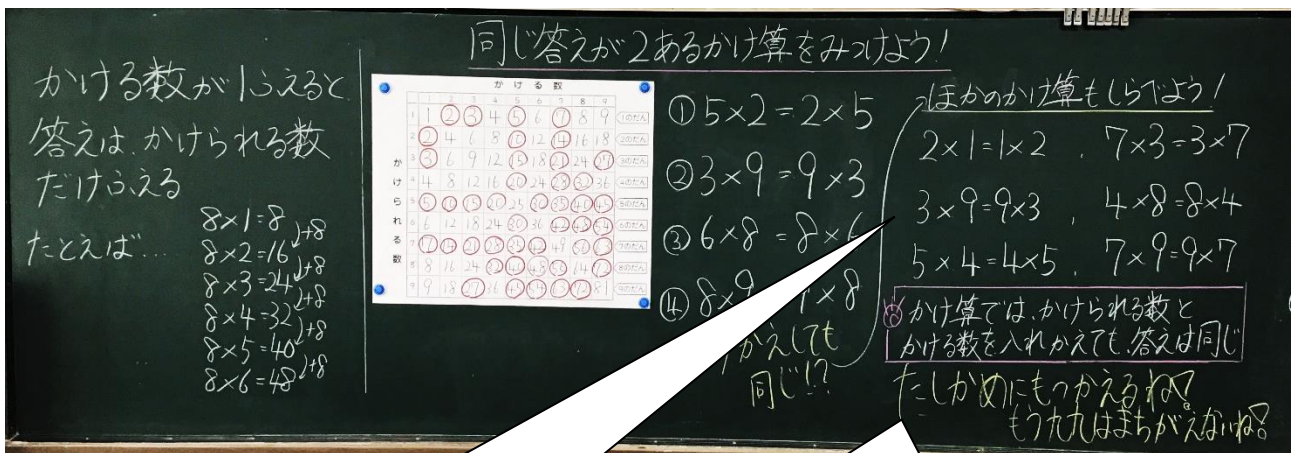 同じ答えが2あるかけ算をみつけよう!
かける数が1ふえると
答えは、かけられる数
だけふえる
たとえば…
8×1=8
8×2=16
8×3=24
8×4=32
8×5=40
8×6=48
+8
+8
+8
+8
+8
かける数
かけられる数
1 2 3 4 5 6 7 8 9
1 1 2 3 4 5 6 7 8 9 1のだん
2 2 4 6 8 10 12 14 16 18 2のだん
3 3 6 9 12 15 18 21 24 27 3のだん
4 4 8 12 16 20 24 28 32 36 4のだん
5 5 10 15 20 25 30 35 40 45 5のだん
6 6 12 18 24 30 36 42 48 54 6のだん
7 7 14 21 28 35 42 49 56 63 7のだん
8 8 16 24 32 40 48 56 64 72 8のだん
9 9 18 27 36 45 54 63 72 81 9のだん
①5×2=2×5
②3×9=9×3
③6×8=8×6
④8×9 ×8
かえしても
同じ!?
ほかのかけ算もしらべよう!
2×1=1×2 、 7×3=3×7
3×9=9×3 、 4×8=8×4
5×4=4×5 、 7×9=9×7
かけ算では、かけられる数と
かける数を入れかえても、答えは同じ
たしかめにもつかえるね!
もう九九はまちがえないね!